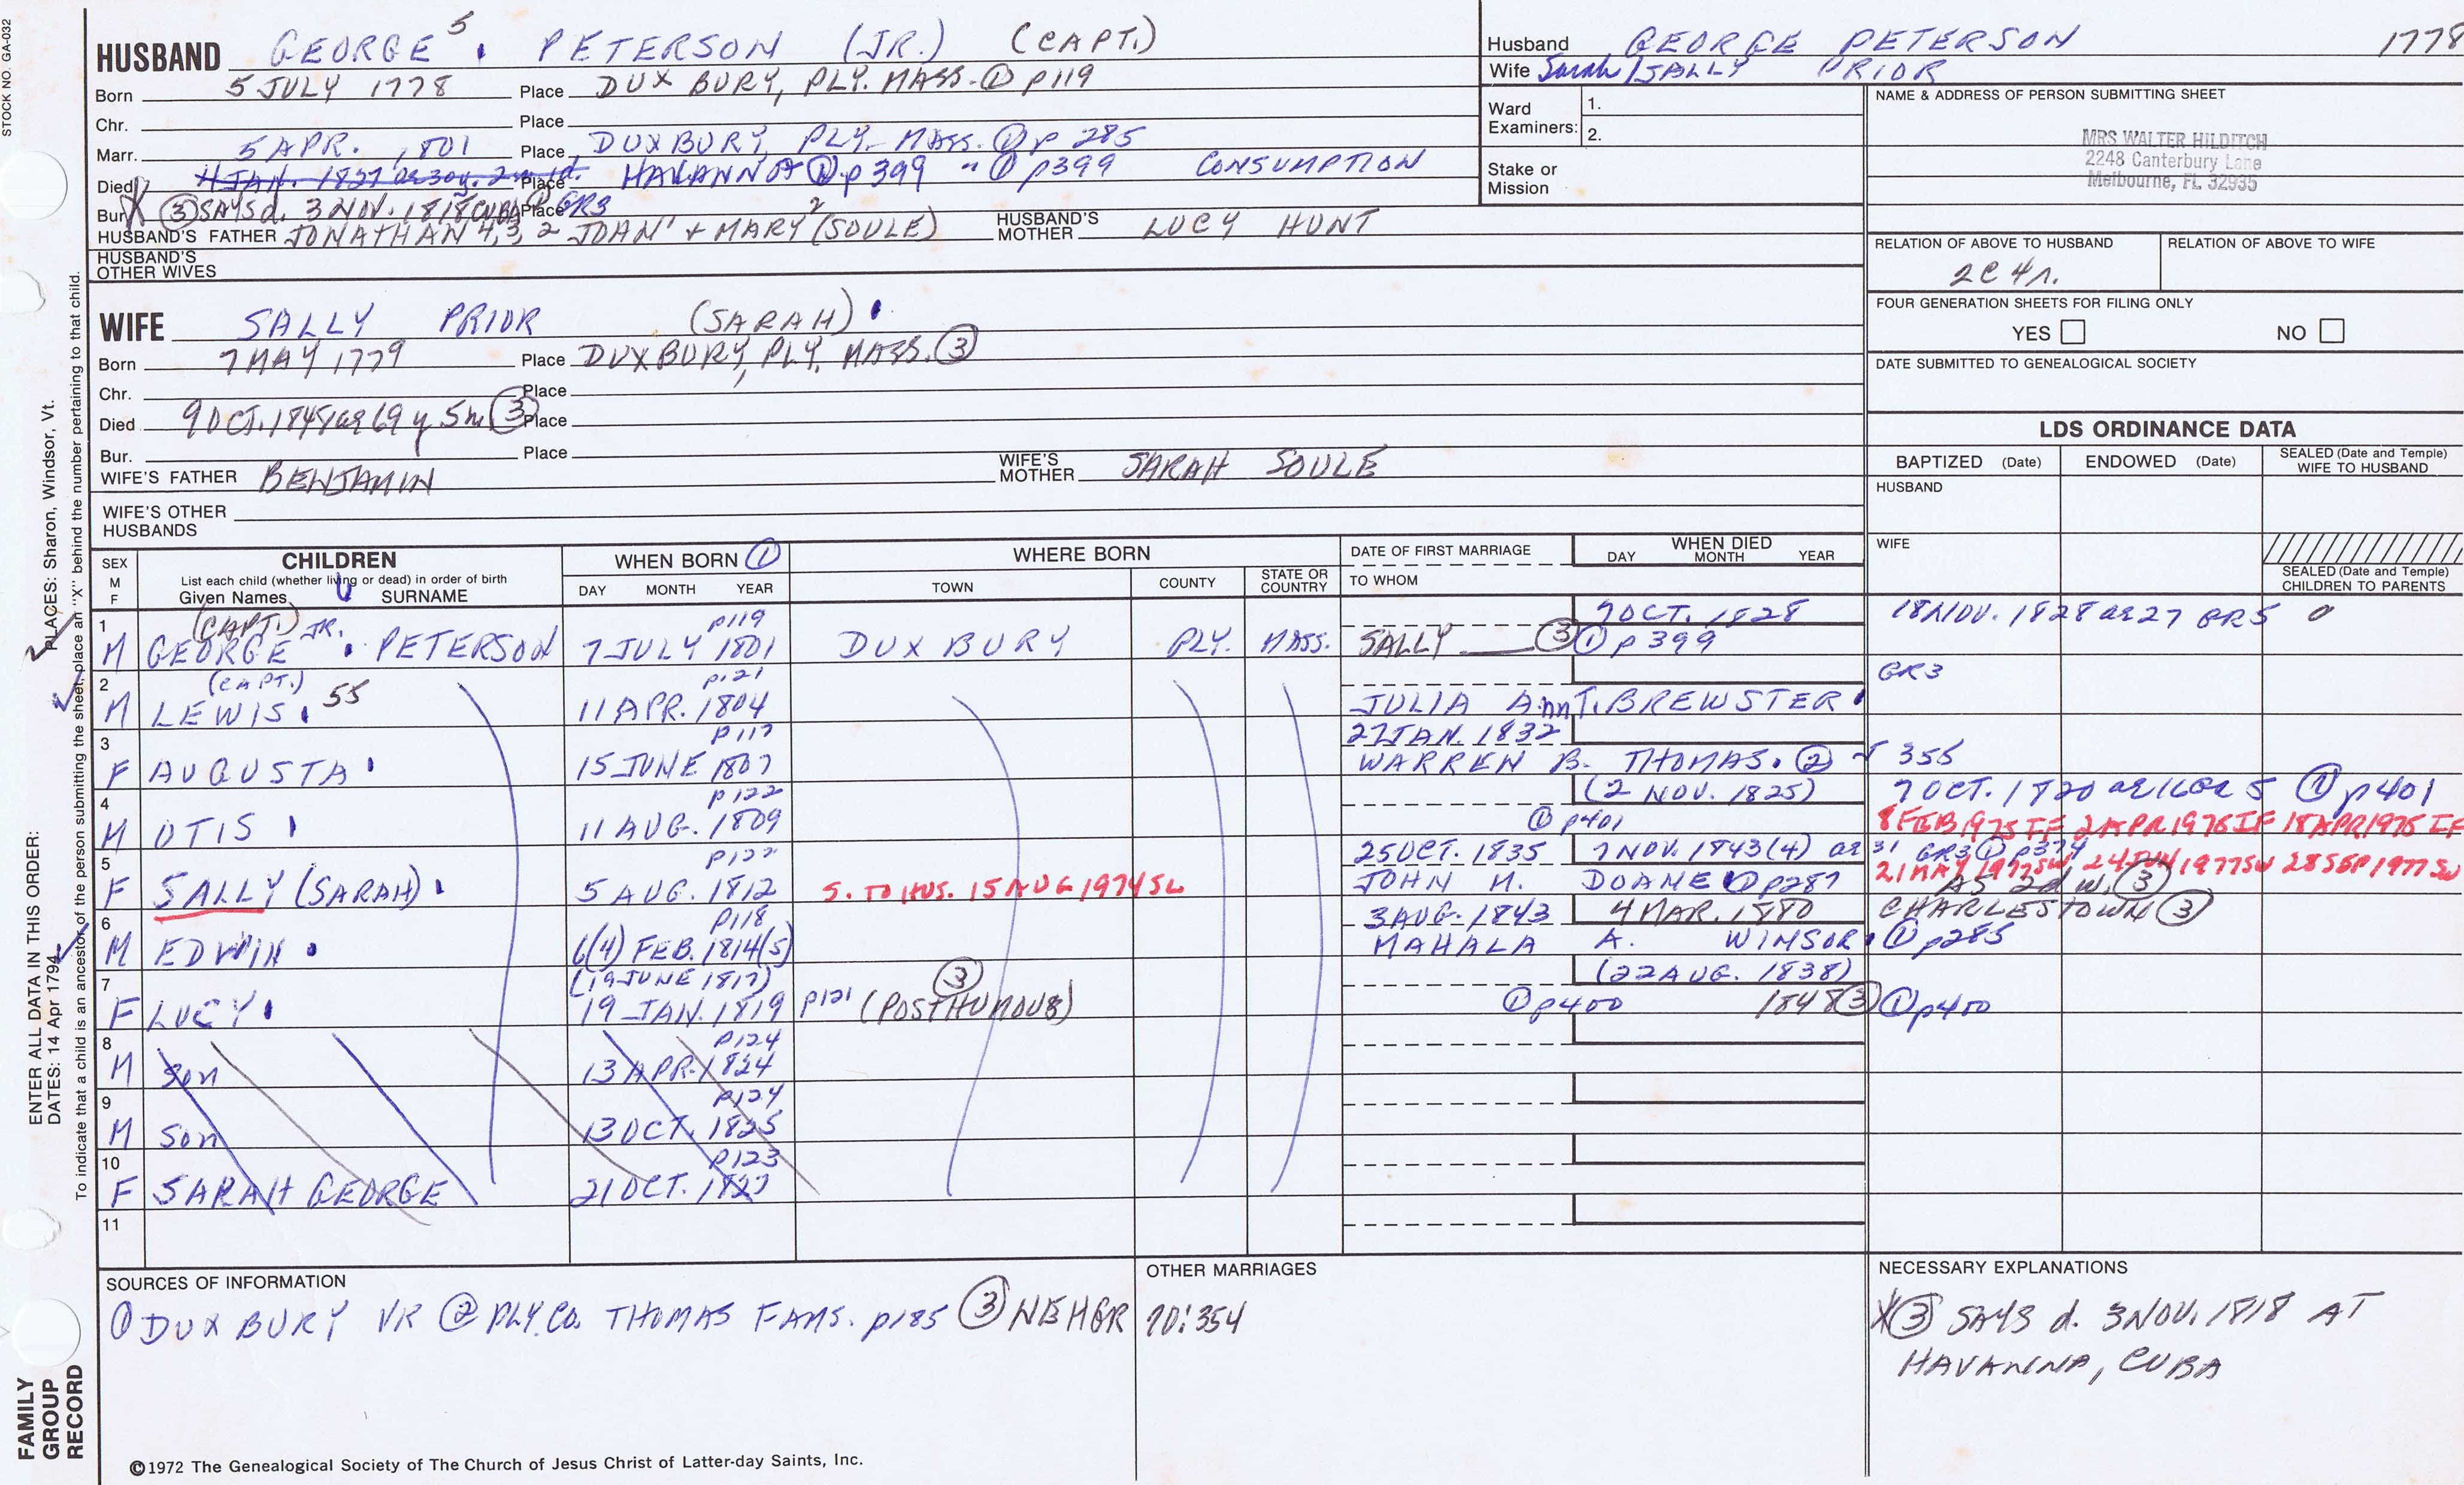 STOCK NO. GA-032
HUSBAND GEORGE 5 . PETERSON (JR.) (CAPT.)
Born 5 JULY 1778 Place DUXBURY, PLY. MASS. ① p119
Chr. Place
Marr. 5 APR. 1801 Place DUXBURY, PLY. MASS. ① p 285
Died 4 JAN. 1827 ae 30y. 2m 1d. Place HAVANNA ① p399 " ① p399 CONSUMPTION
Bur. X ③ SAYS d. 3 NOV. 1818 CUBA ① Place GR3
HUSBAND'S FATHER JONATHAN 4, 3, 2 JOHN 1 + MARY 2 (SOULE) HUSBAND'S MOTHER LUCY HUNT
HUSBAND'S OTHER WIVES
WIFE SALLY PRIOR (SARAH) .
Born 7 MAY 1779 Place DUXBURY, PLY. MASS. ③
Chr. Place
Died 9 OCT. 1848 ae 69 y 5m ③ Place
Bur. Place
WIFE'S FATHER BENJAMIN WIFE'S MOTHER SARAH SOULE
WIFE'S OTHER HUSBANDS
Husband GEORGE PETERSON 1778
Wife Sarah / SALLY PRIOR
Ward Examiners: 1.
2.
Stake or Mission
NAME & ADDRESS OF PERSON SUBMITTING SHEET
MRS WALTER HILDITCH
2248 Canterbury Lane
Melbourne, FL 32935
RELATION OF ABOVE TO HUSBAND RELATION OF ABOVE TO WIFE
2C 4r.
FOUR GENERATION SHEETS FOR FILING ONLY
YES NO
DATE SUBMITTED TO GENEALOGICAL SOCIETY
LDS ORDINANCE DATA
BAPTIZED (Date) ENDOWED (Date) SEALED (Date and Temple) WIFE TO HUSBAND
HUSBAND
WIFE
SEALED (Date and Temple) CHILDREN TO PARENTS
SEX M F CHILDREN List each child (whether living or dead) in order of birth Given Names SURNAME
WHEN BORN ① DAY MONTH YEAR
WHERE BORN TOWN COUNTY STATE OR COUNTRY
DATE OF FIRST MARRIAGE TO WHOM
WHEN DIED DAY MONTH YEAR
1 (CAPT.) JR. p119 7 OCT. 1828 18 NOV. 1828 ae 27 GR5
M GEORGE . PETERSON 7 JULY 1801 DUXBURY PLY. MASS. SALLY ③ ① p 399
2 (CAPT.) 55 p121 GR3
M LEWIS . 11 APR. 1804 JULIA Ann T. BREWSTER .
3 p117 27 JAN. 1832
F AUGUSTA . 15 JUNE 1807 WARREN B. THOMAS . ② 355
4 p122 (2 NOV. 1825) 7 OCT. 1820 GR 5 ① p401
M OTIS . 11 AUG. 1809 ① p401 8 FEB 1975 IF 2 APR 1975 IF 18 APR 1975 IF
5 p122 25 OCT. 1835 7 NOV. 1843(4) ae 31 GR3 ① p374
F SALLY (SARAH) . 5 AUG. 1812 S. TO HUS. 15 AUG 1974 SL JOHN M. DOANE ① p287 21 MAY 1977 SW 24 JUN 1977 SW 28 SEP 1977 SW
AS 2d W. ③
6 p118 3 AUG. 1843 4 MAR. 1880 CHARLESTOWN ③
M EDWIN . 6(4) FEB. 1814(5) MAHALA A. WINSOR . ① p285
7 (19 JUNE 1817) ③ (22 AUG. 1838)
F LUCY . 19 JAN. 1819 p121 (POSTHUMOUS) ① p400 1848 ③ ① p400
8 p124
M Son 13 APR. 1824
9 p124
M Son 13 OCT. 1825
10 p123
F SARAH GEORGE 21 OCT. 1827
11
SOURCES OF INFORMATION
① DUXBURY VR ② PLY. CO. THOMAS FAMS. p185 ③ NEHGR 70:354
OTHER MARRIAGES
NECESSARY EXPLANATIONS
X ③ SAYS d. 3 NOV. 1818 AT
HAVANNA, CUBA
©1972 The Genealogical Society of The Church of Jesus Christ of Latter-day Saints, Inc.
ENTER ALL DATA IN THIS ORDER:
PLACES: Sharon, Windsor, Vt.
DATES: 14 Apr 1794
To indicate that a child is an ancestor of the person submitting the sheet, place an "X" behind the number pertaining to that child.
FAMILY GROUP RECORD